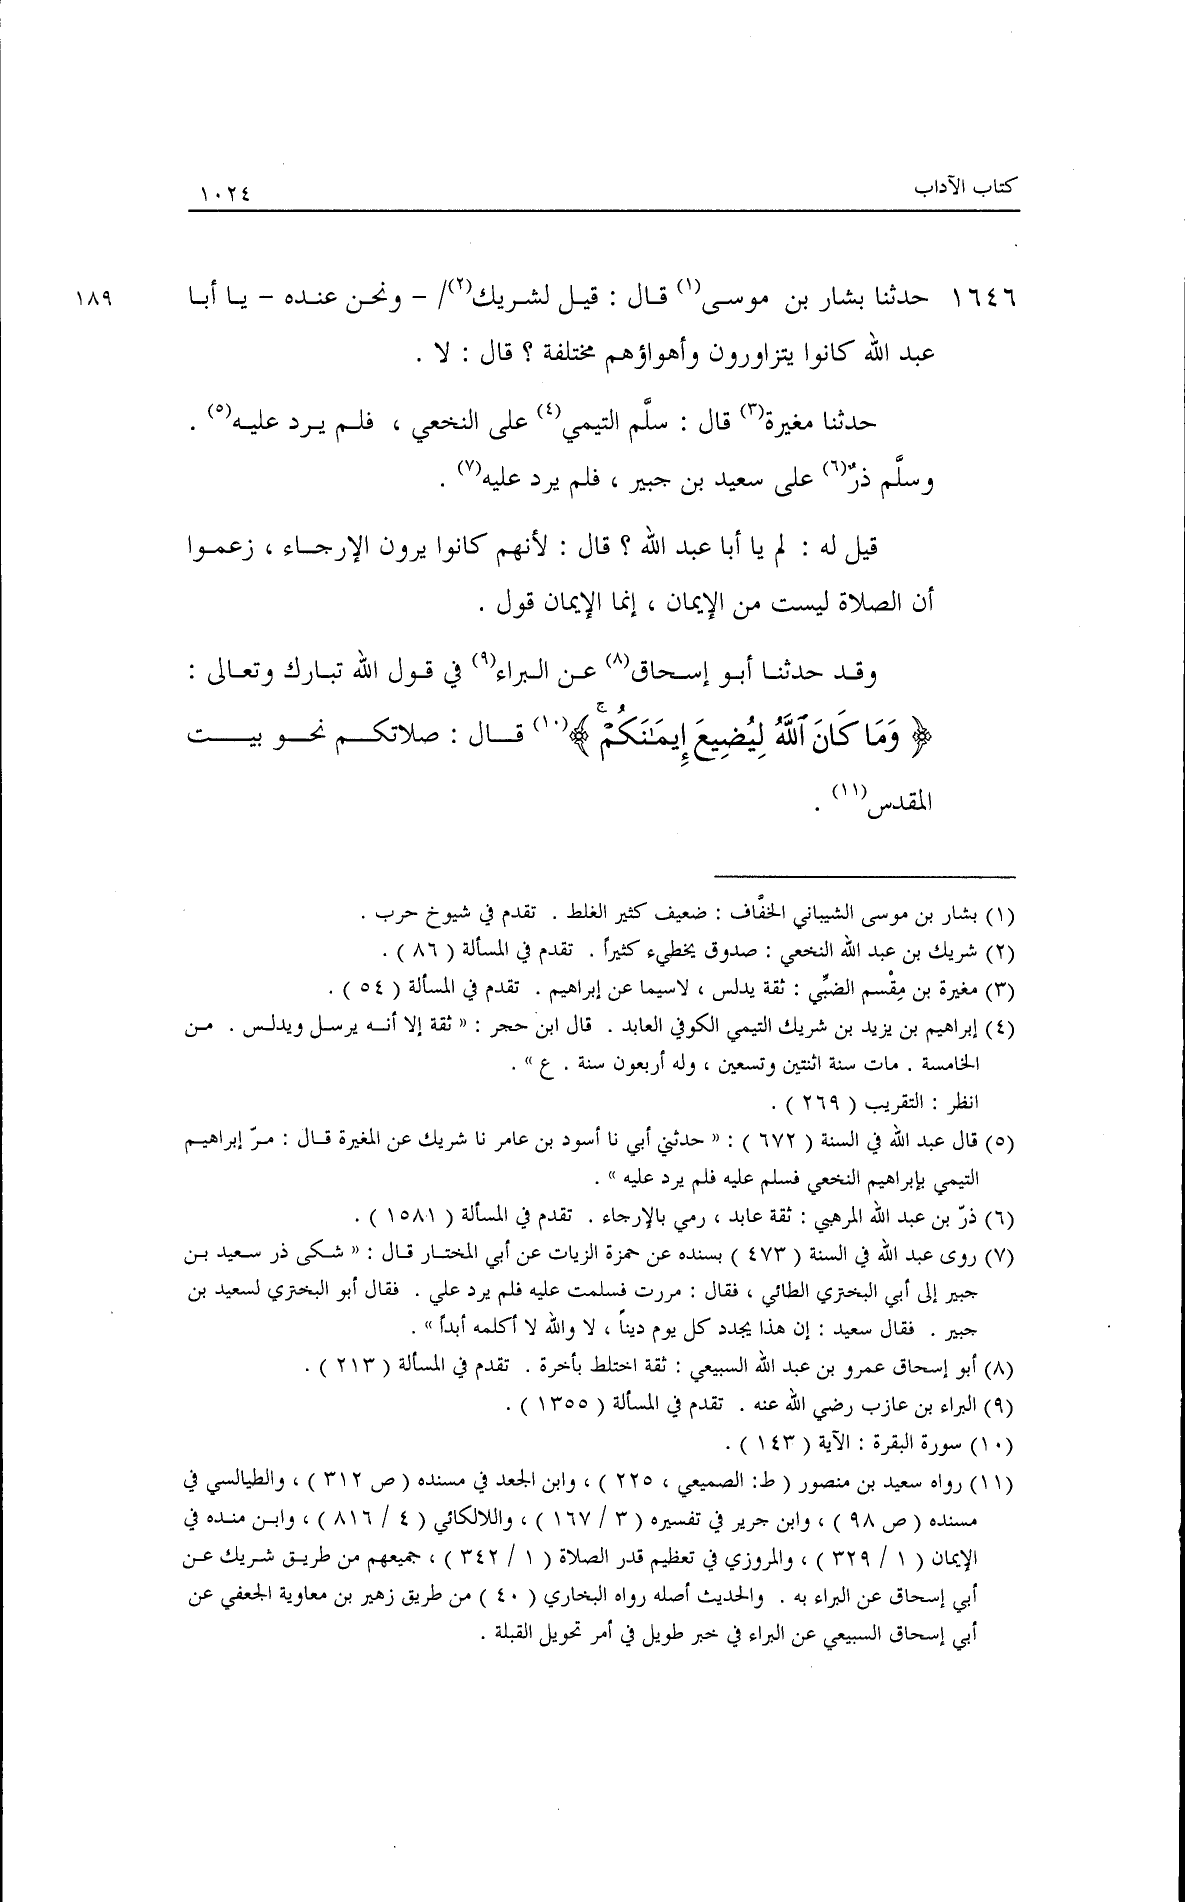 كتاب الآداب ١٠٢٤
١٦٤٦ حدثنا بشار بن موسى(١) قال : قيل لشريك(٢)/ - ونحن عنده - يا أبا ١٨٩
عبد الله كانوا يتزاورون وأهواؤهم مختلفة ؟ قال : لا .
حدثنا مغيرة(٣) قال : سلَّم التيمي(٤) على النخعي ، فلم يرد عليه(٥) .
وسلَّم ذرٌ(٦) على سعيد بن جبير ، فلم يرد عليه(٧) .
قيل له : لم يا أبا عبد الله ؟ قال : لأنهم كانوا يرون الإرجاء ، زعموا
أن الصلاة ليست من الإيمان ، إنما الإيمان قول .
وقد حدثنا أبو إسحاق(٨) عن البراء(٩) في قول الله تبارك وتعالى :
﴿ وَمَا كَانَ ٱللَّهُ لِيُضِيعَ إِيمَـٰنَكُمْ ۚ ﴾(١٠) قال : صلاتكم نحو بيت
المقدس(١١) .
(١) بشار بن موسى الشيباني الخفَّاف : ضعيف كثير الغلط . تقدم في شيوخ حرب .
(٢) شريك بن عبد الله النخعي : صدوق يخطيء كثيراً . تقدم في المسألة ( ٨٦ ) .
(٣) مغيرة بن مِقْسم الضبِّي : ثقة يدلس ، لاسيما عن إبراهيم . تقدم في المسألة ( ٥٤ ) .
(٤) إبراهيم بن يزيد بن شريك التيمي الكوفي العابد . قال ابن حجر : « ثقة إلا أنه يرسل ويدلس . من
الخامسة . مات سنة اثنتين وتسعين ، وله أربعون سنة . ع » .
انظر : التقريب ( ٢٦٩ ) .
(٥) قال عبد الله في السنة ( ٦٧٢ ) : « حدثني أبي نا أسود بن عامر نا شريك عن المغيرة قال : مرّ إبراهيم
التيمي بإبراهيم النخعي فسلم عليه فلم يرد عليه » .
(٦) ذرّ بن عبد الله المرهبي : ثقة عابد ، رمي بالإرجاء . تقدم في المسألة ( ١٥٨١ ) .
(٧) روى عبد الله في السنة ( ٤٧٣ ) بسنده عن حمزة الزيات عن أبي المختار قال : « شكى ذر سعيد بن
جبير إلى أبي البختري الطائي ، فقال : مررت فسلمت عليه فلم يرد علي . فقال أبو البختري لسعيد بن
جبير . فقال سعيد : إن هذا يجدد كل يوم ديناً ، لا والله لا أكلمه أبداً » .
(٨) أبو إسحاق عمرو بن عبد الله السبيعي : ثقة اختلط بأخرة . تقدم في المسألة ( ٢١٣ ) .
(٩) البراء بن عازب رضي الله عنه . تقدم في المسألة ( ١٣٥٥ ) .
(١٠) سورة البقرة : الآية ( ١٤٣ ) .
(١١) رواه سعيد بن منصور ( ط: الصميعي ، ٢٢٥ ) ، وابن الجعد في مسنده ( ص ٣١٢ ) ، والطيالسي في
مسنده ( ص ٩٨ ) ، وابن جرير في تفسيره ( ٣ / ١٦٧ ) ، واللالكائي ( ٤ / ٨١٦ ) ، وابن منده في
الإيمان ( ١ / ٣٢٩ ) ، والمروزي في تعظيم قدر الصلاة ( ١ / ٣٤٢ ) ، جميعهم من طريق شريك عن
أبي إسحاق عن البراء به . والحديث أصله رواه البخاري ( ٤٠ ) من طريق زهير بن معاوية الجعفي عن
أبي إسحاق السبيعي عن البراء في خبر طويل في أمر تحويل القبلة .